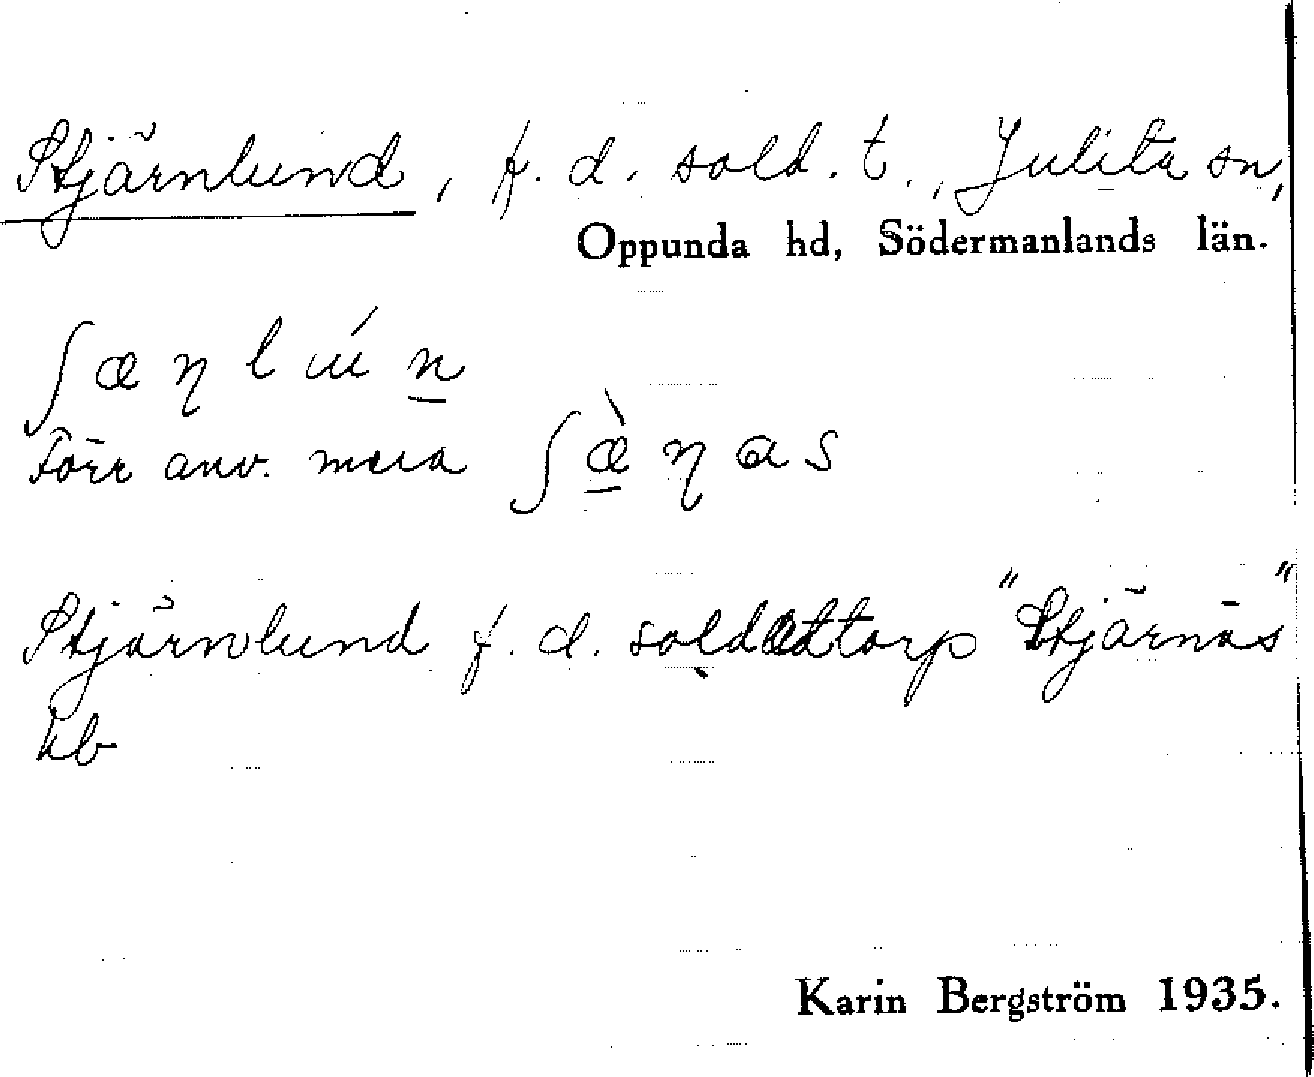 Stjärnlund, f. d. sold. t., Julita sn,
Oppunda hd, Södermanlands län.
ʃæɳlún̲
Förr anv. mera ʃæ̲̀ɳas
Stjärnlund f. d. soldattorp "Stjärnäs"
hb
Karin Bergström 1935.